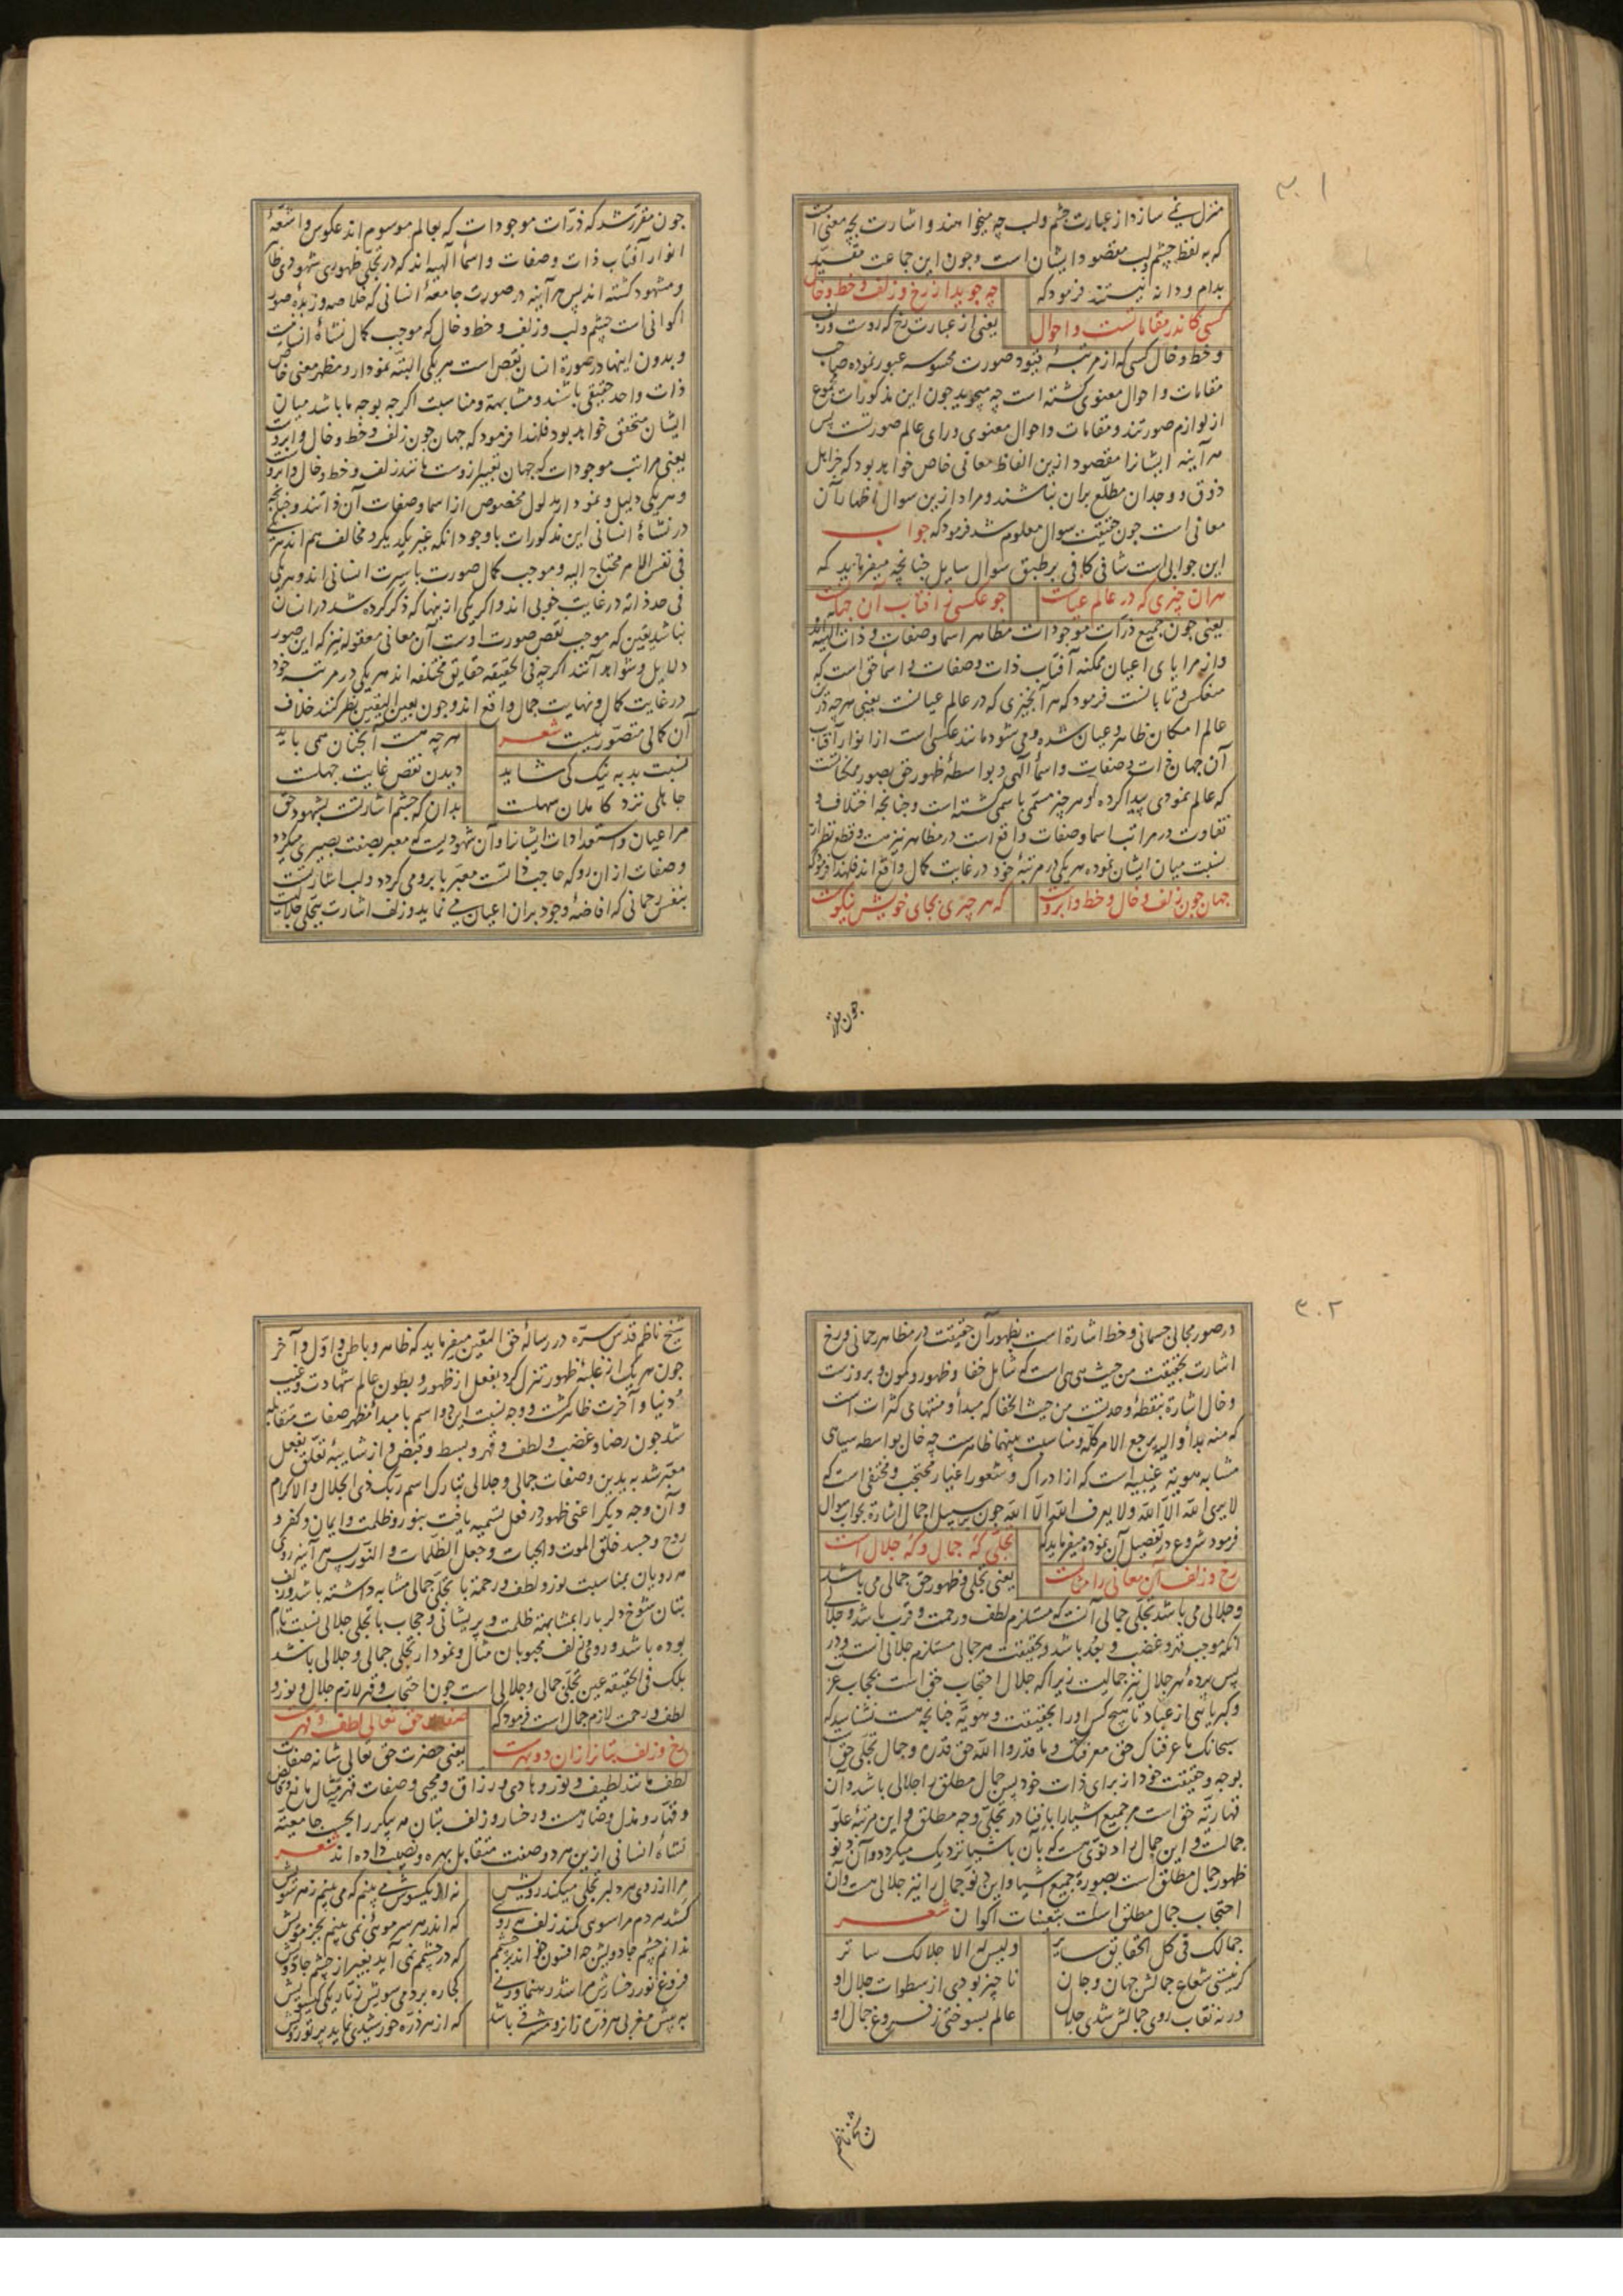 ۳۰۱
منزل نمی سازد از عبارت چشم و لب چه میخواهند و اشارت بچه معنی است
که به لفظ چشم و لب مقصود ایشان است و چون این جماعت مقید
بدام و دانه نیستند فرمود که
چه جوید از رخ و زلف و خط و خال
کسی کاندر مقاماتست و احوال
یعنی از عبارت رخ که روست و زلف
و خط و خال کسی که از مرتبه قیود صورت محسوسه عبور نموده صاحب
مقامات و احوال معنوی گشته است چه میجوید چون این مذکورات مجموع
از لوازم صورتند و مقامات و احوال معنوی ورای عالم صورتست پس
هر آینه ایشانرا مقصود ازین الفاظ معانی خاص خواهد بود که جز اهل
ذوق و وجدان مطلع بران نباشند و مراد ازین سوال اظهار آن
معانی است چون حقیقت سوال معلوم شد فرمود که جواب
این جوابی است شافی کافی بر طبق سوال سایل چنانچه میفرماید که
هران چیزی که در عالم عیانست
چو عکسی ز افتاب آن جهانست
یعنی چون جمیع ذرات موجودات مظاهر اسما و صفات و ذات الهیه اند
و از مرایای اعیان ممکنه آفتاب ذات و صفات و اسما حق است که
منعکس و تابانست فرمود که هر آنچیزی که در عالم عیانست یعنی هرچه درین
عالم امکان ظاهر و عیان شده و می شود مانند عکسی است از انوار آفتاب
آن جهان ذات و صفات و اسما آلهی و بواسطه ظهور حق بصور ممکناتست
که عالم نمودی پیدا کرده و هر چیز مسمی باسمی گشته است و چنانچه اختلاف و
تفاوت در مراتب اسما و صفات واقع است در مظاهر نیز هست و قطع نظر از
نسبت میان ایشان نموده هر یکی در مرتبه خود در غایت کمال واقع اند فلهذا فرمود که
جهان چون زلف و خال و خط و ابروست
که هر چیزی بجای خویش نیکوست
چون مقرر
چون مقرر شد که ذرات موجودات که بعالم موسوم اند عکوس و اشعه
انوار آفتاب ذات و صفات و اسما آلهیه اند که در تجلی ظهوری شهودی ظاهر
و مشهود گشته اند پس هر آینه در صورت جامعه انسانی که خلاصه و زبده صور
اکوانی است چشم و لب و زلف و خط و خال که موجب کمال نشأه انسانیست
و بدون اینها در صورة انسان نقص است هر یکی البته نمودار و مظهر معنی خاص
ذات واحد حقیقی باشند و مشابهة و مناسبت اگرچه بوجه ما باشد میان
ایشان متحقق خواهد بود فلهذا فرمود که جهان چون زلف و خط و خال و ابروست
یعنی مراتب موجودات که جهان تعبیر ازوست مانند زلف و خط و خال و ابروست
و هر یکی دلیل و نمودار مدلول مخصوص از اسما و صفات آن ذاتند و چنانچه
در نشأه انسانی این مذکورات باوجود انکه غیر یکدیگر و مخالف هم اند هر یکی
فی نفس الامر محتاج الیه و موجب کمال صورت با سیرت انسانی اند و هر یکی
فی حد ذاته در غایت خوبی اند و اگر یکی ازینها که ذکر کرده شد در انسان
نباشد یقین که موجب نقص صورت اوست آن معانی معقوله نیز که این صور
دلایل و شواهد آنند اگرچه فی الحقیقه حقایق مختلفه اند هر یکی در مرتبه خود
در غایت کمال و نهایت جمال واقع اند و چون بعین الیقین نظر کنند خلاف
آن کمالی متصور نیست شعر
هرچه هست آنچنان همی باید
نسبت بد به نیک کی شاید
دیدن نقص غایت جهلست
جاهلی نزد کاملان سهلست
بدان که چشم اشارتست بشهود حق
مر اعیان و استعدادات ایشانرا و آن شهودیست که معبر بصفت بصیری میگردد
و صفات ازان رو که حاجب ذاتست معبر بابرو می گردد و لب اشارتست
بنفس رحمانی که افاضه وجود بران اعیان می نماید و زلف اشارت بتجلی جلالیست
۳۰۲
در صور مجالی جسمانی و خط اشارة است بظهور آن حقیقت در مظاهر رحمانی و رخ
اشارت بحقیقت من حیث هی هی است که شامل خفا و ظهور و کمون و بروزست
و خال اشارة بنقطه وحدتست من حیث الخفا که مبدأ و منتهای کثرات است
که منه بدأ و الیه یرجع الامر کله و مناسبت بینهما ظاهرست چه خال بواسطه سیاهی
مشابه هویة غیبیه است که از ادراک و شعور اغیار محتجب و مختفی است که
لا یری الله الا الله و لا یعرف الله الا الله چون بر سبیل اجمال اشارة بجواب سوال
فرمود شروع در تفصیل آن نموده میفرماید که
تجلی که جمال و که جلال است
رخ و زلف آن معانی را مثالست
یعنی تجلی و ظهور حق جمالی می باشد
و جلالی می باشد تجلی جمالی آنست که مستلزم لطف و رحمت و قرب باشد و جلالی
آنکه موجب قهر و غضب و بعد باشد و بحقیقت هر جمالی مستلزم جلالی است و در
پس پرده هر جلال نیز جمالیست زیرا که جلال احتجاب حق است بحجاب عز
و کبریائی از عباد تا هیچ کس او را بحقیقت و هویة چنانچه هست نشناسد که
سبحانک ما عرفناک حق معرفتک و ما قدروا الله حق قدره و جمال تجلی حق است
بوجه و حقیقت خود از برای ذات خود پس جمال مطلق را جلالی باشد و آن
قهاریة حق است مر جمیع اشیا را بافنا در تجلی وجه مطلق و این مرتبه علو
جمالست و این جمال را دنوی هست که بآن باشیا نزدیک میگردد و آن دنو
ظهور جمال مطلق است بصورة جمیع اشیا و این دنو جمال را نیز جلالی هست و آن
احتجاب جمال مطلق است بتعینات اکوان شعر
جمالک فی کل الحقایق سایر
و لیس له الا جلالک ساتر
گر نیستی شعاع جمالش جهان و جان
ناچیز بودی از سطوات جلال او
ور نه نقاب روی جمالش شدی جلال
عالم بسوختی ز فروغ جمال او
شیخ ناظم
شیخ ناظم قدس سره در رساله حق الیقین میفرماید که ظاهر و باطن و اول و آخر
چون هر یک از غلبه ظهور تنزل کرد بفعل از ظهور و بطون عالم شهادت و غیب
و دنیا و آخرت ظاهر گشت و وجه نسبت این دو اسم با مبدأ مظهر صفات متقابله
شد چون رضا و غضب و لطف و قهر و بسط و قبض و از شایبه تعلق بفعل
معبر شد به یدین و صفات جمالی و جلالی تبارک اسم ربک ذی الجلال و الاکرام
و آن وجه دیگر اعنی ظهور در فعل تسمیه یافت بنور و ظلمت و ایمان و کفر و
روح و جسد خلق الموت و الحیات و جعل الظلمات و النور پس هر آینه روی
مه رویان بمناسبت نور و لطف و رحمة با تجلی جمالی مشابه داشته باشد و زلف
بتان شوخ دلربا را بمشابهة ظلمت و پریشانی و حجاب با تجلی جلالی نسبت تام
بوده باشد و روی و زلف محبوبان مثال و نمودار تجلی جمالی و جلالی باشد
بلک فی الحقیقه عین تجلی جمالی و جلالی است چون احتجاب و قهر لازم جلال و نور و
لطف و رحمت لازم جمال است فرمود که
صفات حق تعالی لطف و قهرست
رخ و زلف بتانرا زان دو بهرست
یعنی حضرت حق تعالی شانه صفات
لطف مانند لطیف و نور و هادی و رزاق و محیی و صفات قهر مثال مانع و قابض
و قهار و مذل و ضار هست و رخسار و زلف بتان مه پیکر را بحسب جامعیة
نشأه انسانی ازین هر دو صفت متقابل بهره و نصیب داده اند شعر
مرا از روی هر دلبر تجلی میکند رویش
نه از یکسوش می بینم که می بینم ز هر سویش
کشد هر دم مرا سوی کمند زلف مه رویی
که اندر هر سر موئی نمی بینم بجز مویش
ندانم چشم جادویش چه افسون خواند بر چشمم
که در چشمم نمی آید بغیر از چشم جادویش
فروغ نور رخسارش مرا شد رهنما ورنی
کجا ره بردمی سویش ز تاریکی گیسویش
به پیش مغربی هر ذره زانرو مشرقی باشد
که از هر ذره خورشیدی نماید پرتو رویش